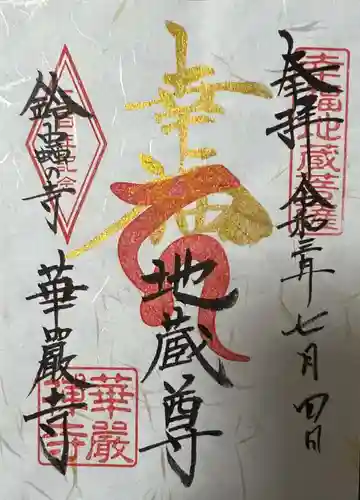 奉拝
令和三年七月四日
幸福地蔵菩薩
幸福
地蔵尊
鈴虫の寺
華厳寺
華厳禅寺